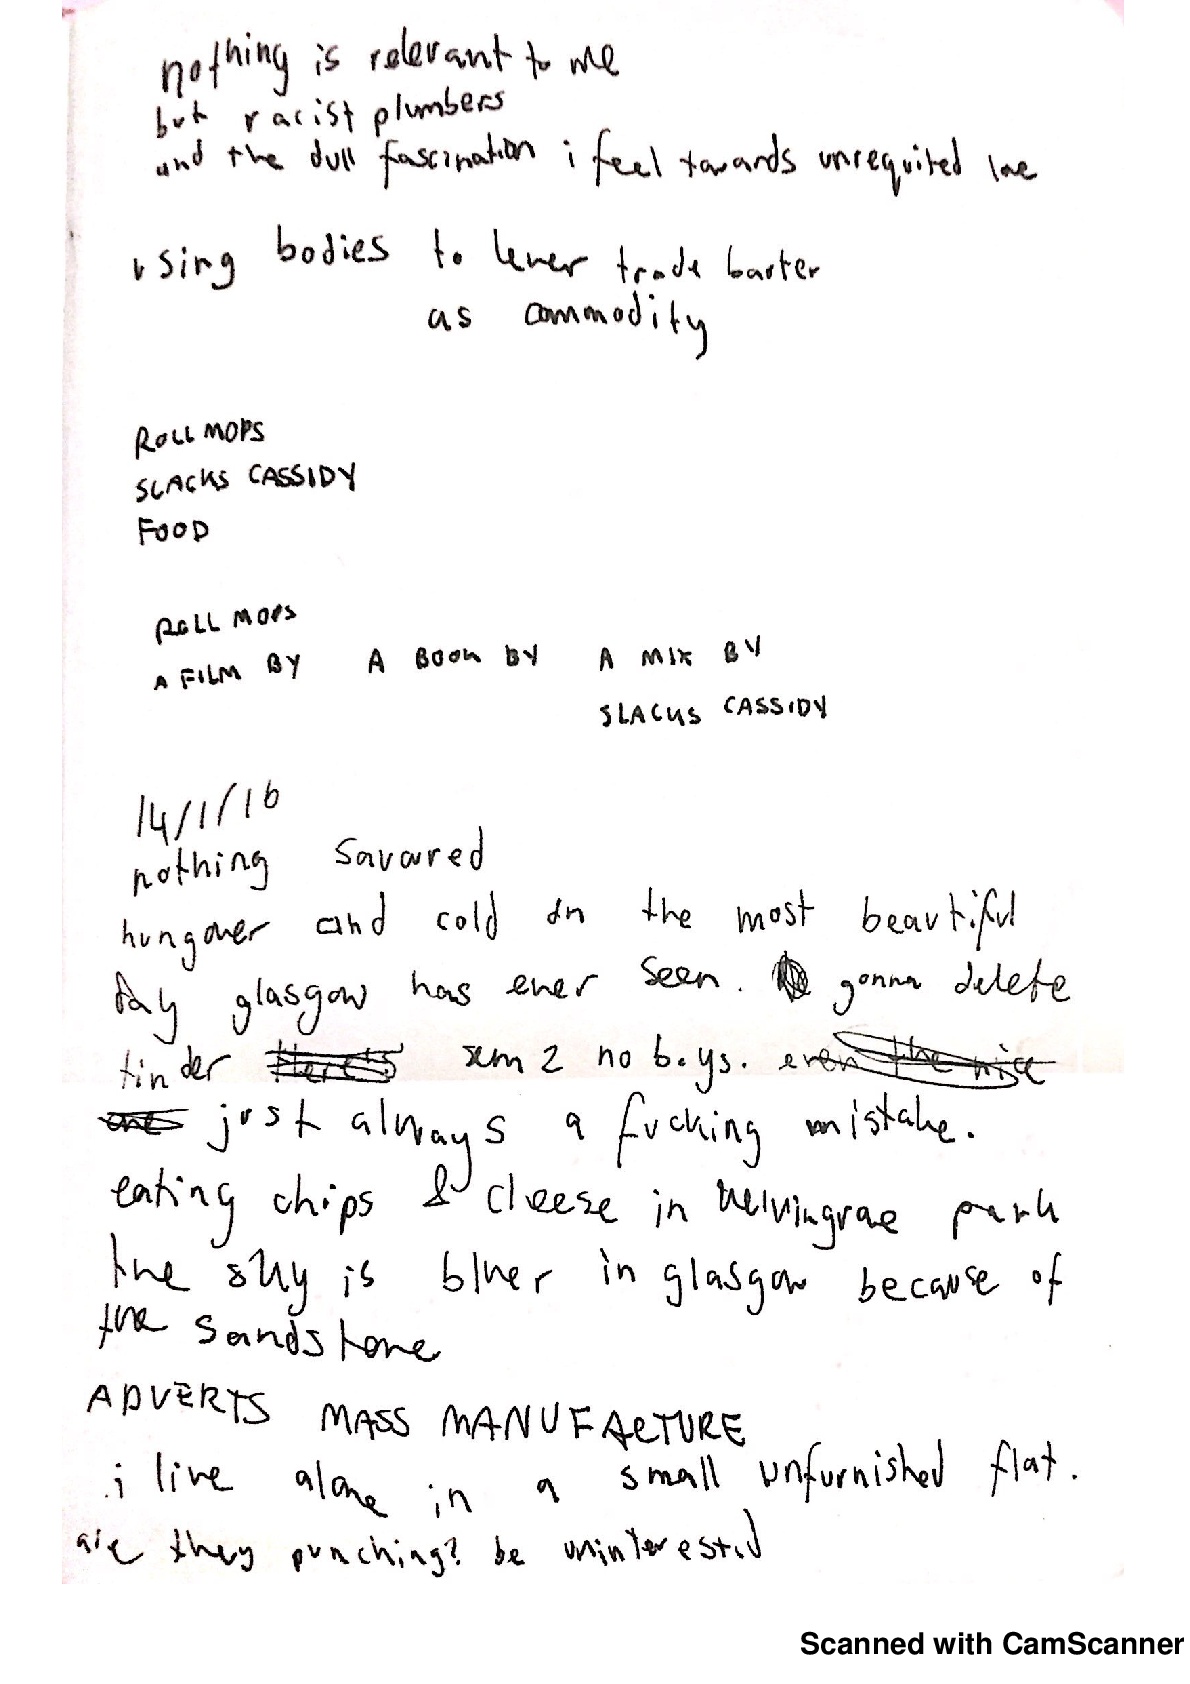 nothing is relevant to me
but racist plumbers
and the dull fascination i feel towards unrequited love
using bodies to lever trade barter
as commodity
ROLL MOPS
SLACKS CASSIDY
FOOD
ROLL MOPS
A FILM BY A BOOK BY A MIX BY
SLACKS CASSIDY
14/1/16
nothing savoured
hungover and cold on the most beautiful
day glasgow has ever seen. gonna delete
tinder sem 2 no boys. even the nice
one just always a fucking mistake.
eating chips & cheese in kelvingrove park
the sky is bluer in glasgow because of
the sandstone
ADVERTS MASS MANUFACTURE
i live alone in a small unfurnished flat.
are they punching? be uninterested
Scanned with CamScanner